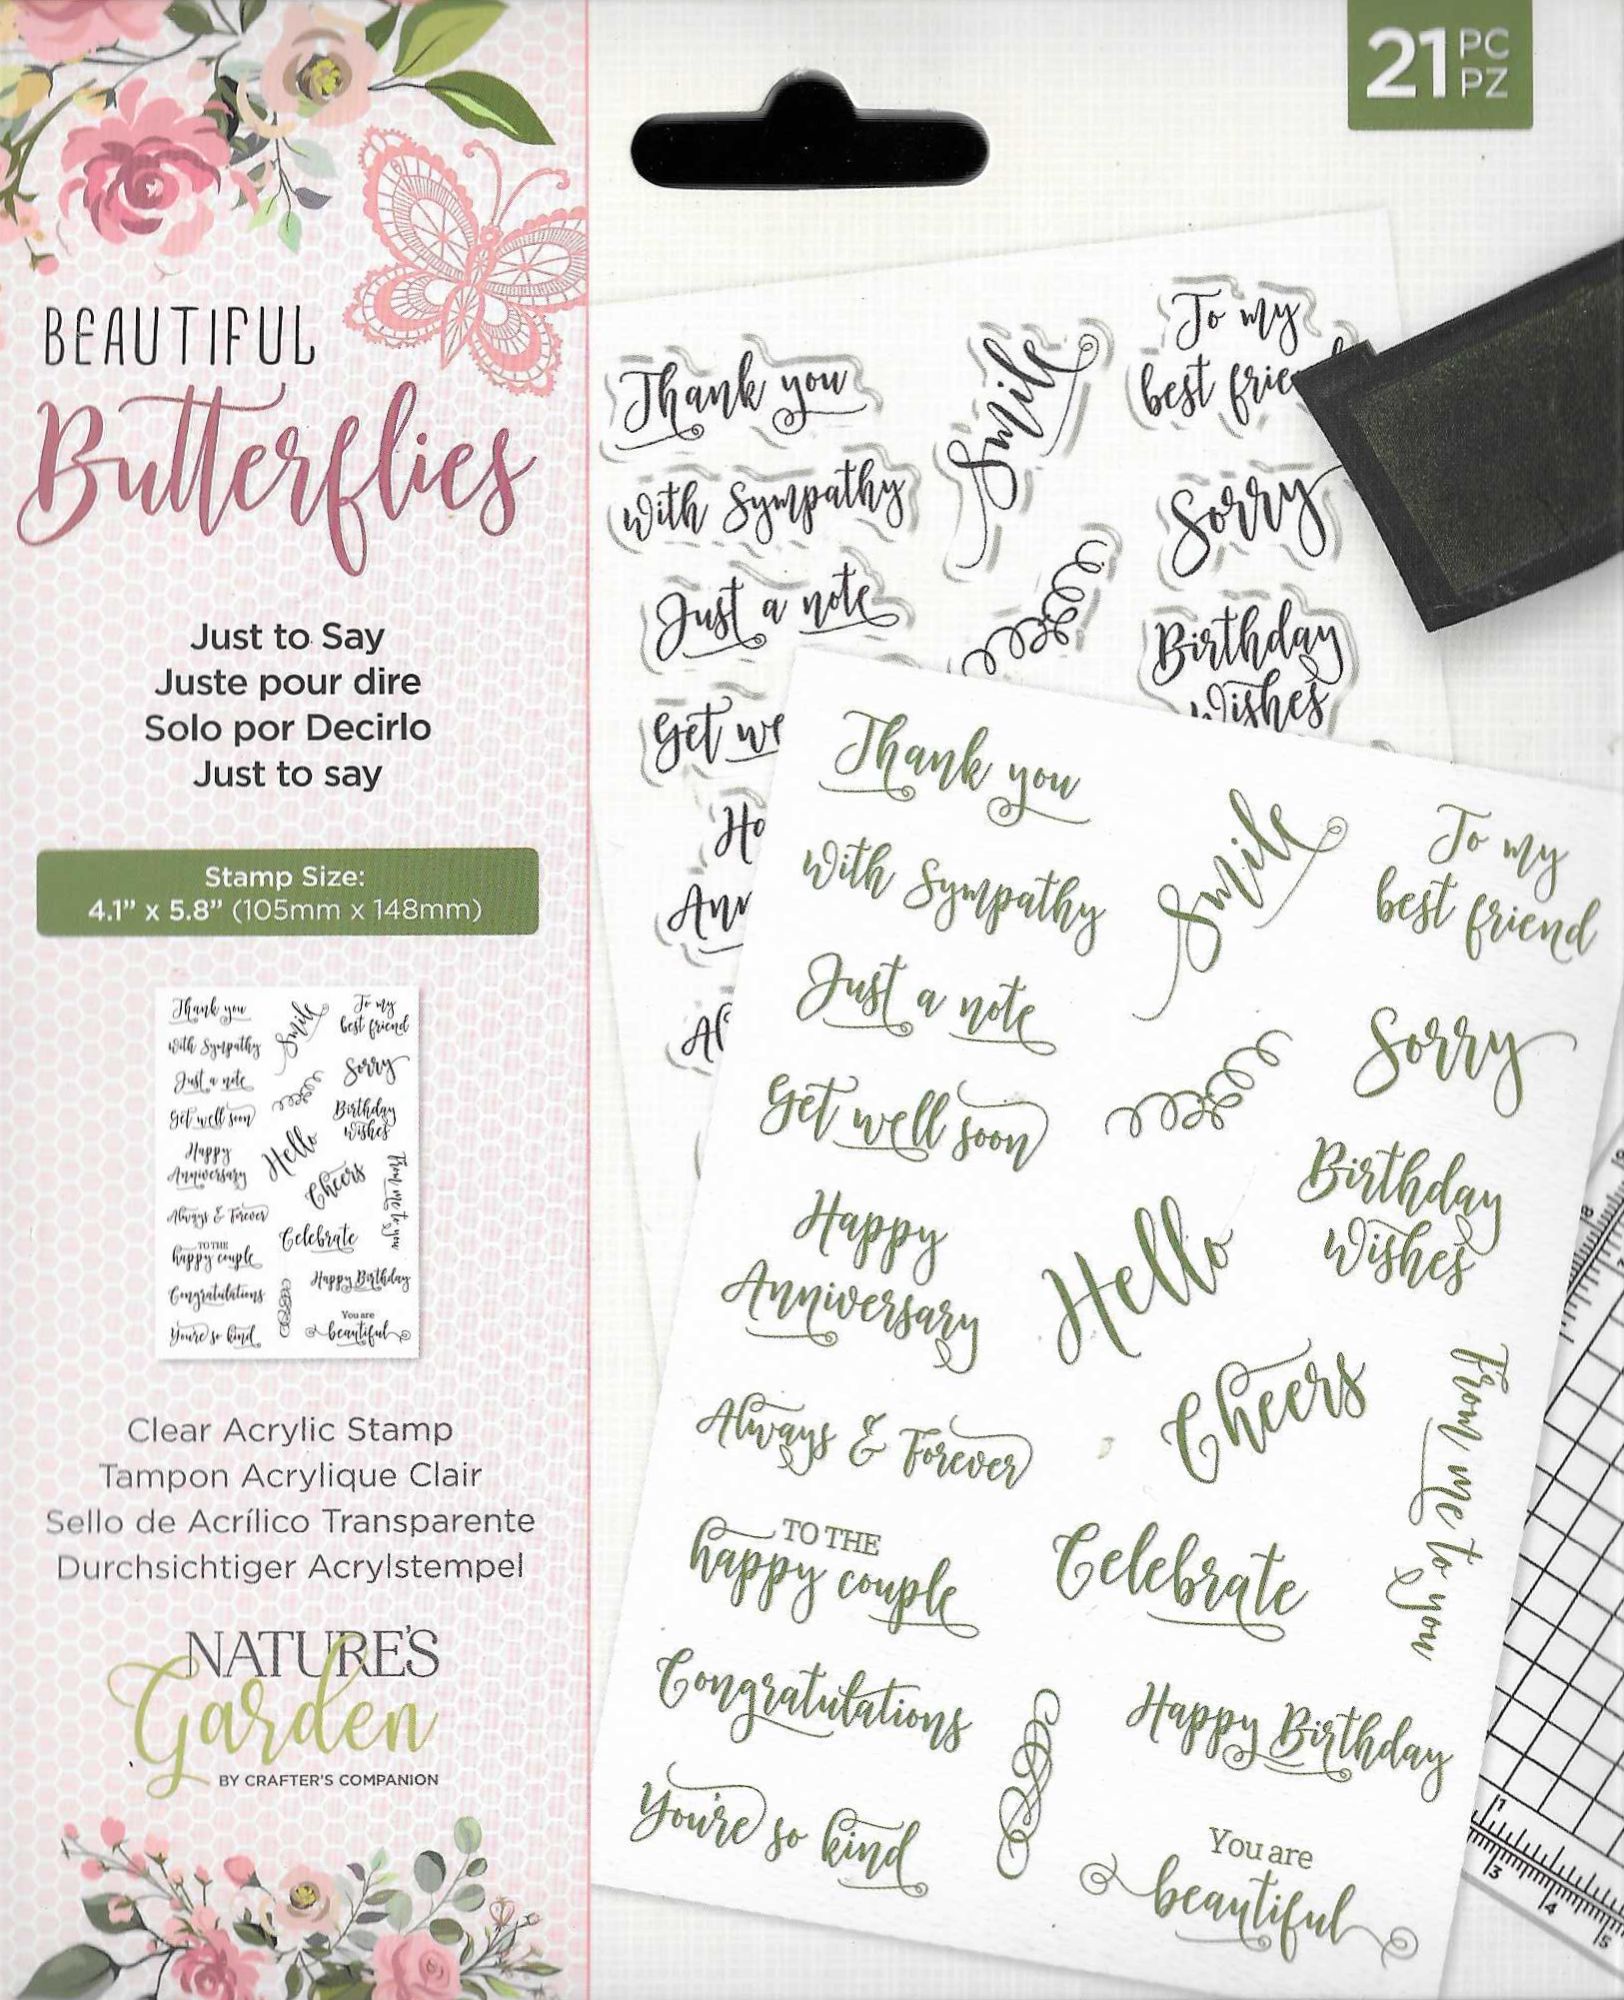 21 PC
PZ
BEAUTIFUL
Butterflies
Just to Say
Juste pour dire
Solo por Decirlo
Just to say
Stamp Size:
4.1" x 5.8" (105mm x 148mm)
Thank you
With Sympathy
Just a note
Get well soon
Happy
Anniversary
Always & Forever
TO THE
happy couple
Congratulations
You're so kind
Smile
Hello
Cheers
Celebrate
To my
best friend
Sorry
Birthday
Wishes
From me to you
Happy Birthday
You are
beautiful
Clear Acrylic Stamp
Tampon Acrylique Clair
Sello de Acrílico Transparente
Durchsichtiger Acrylstempel
NATURE'S
Garden
BY CRAFTER'S COMPANION
Thank you
With Sympathy
Just a note
Get we
Ho
Ann
Al
Smile
To my
best frie
Sorry
Birthday
Wishes
Thank you
With Sympathy
Just a note
Get well soon
Happy
Anniversary
Always & Forever
TO THE
happy couple
Congratulations
You're so kind
Smile
Hello
Cheers
Celebrate
To my
best friend
Sorry
Birthday
Wishes
From me to you
Happy Birthday
You are
beautiful
1
3
4
5